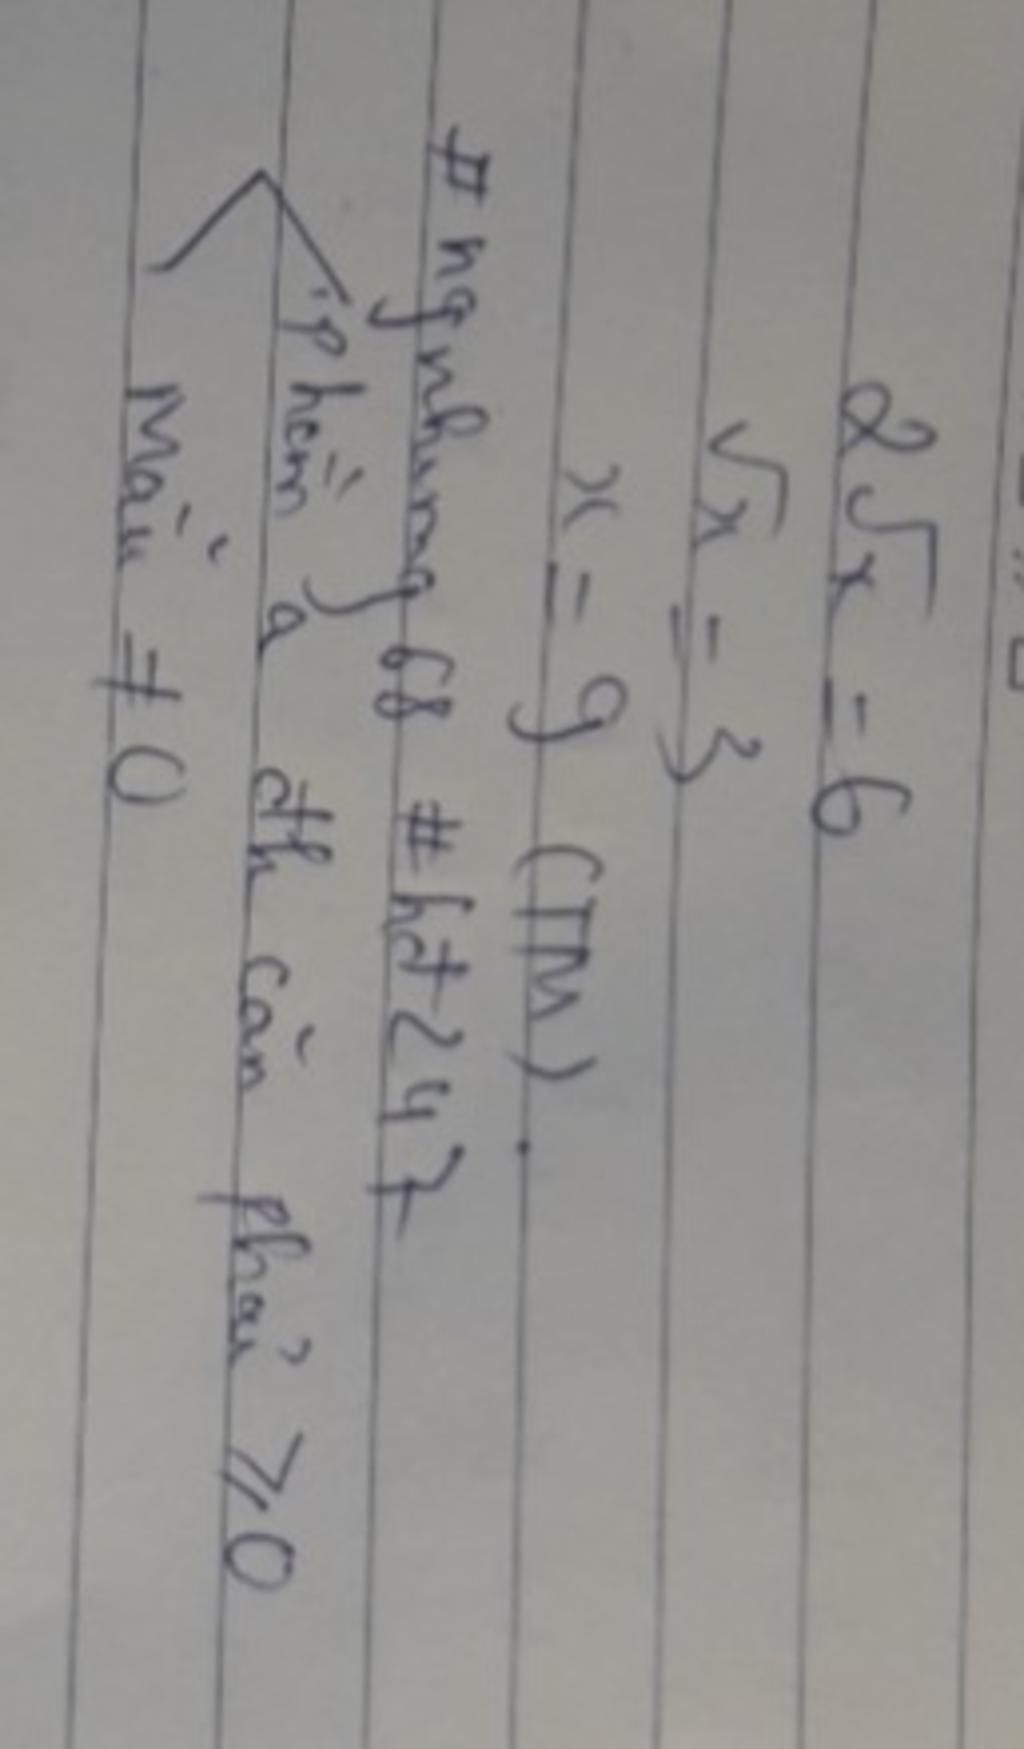 2√x = 6
√x = 3
x = 9 (TM).
# ngnhung68 #hdt247
phần a đk căn phải ≥ 0
Mẫu ≠ 0